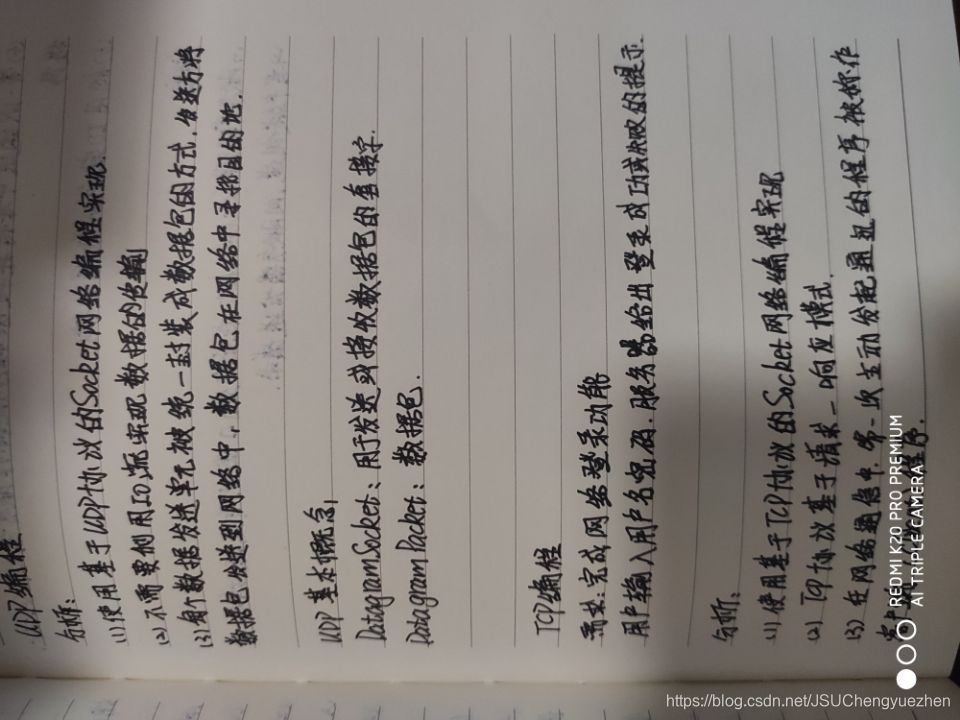 UDP编程
分析:
(1)使用基于UDP协议的Socket网络编程实现.
(2)不需要利用IO流实现数据的传输
(3)每个数据发送单元被统一封装成数据包的方式,发送方将
数据包发送到网络中,数据包在网络中寻找目的地.
UDP基本概念,
DatagramSocket: 用于发送或接收数据包的套接字.
DatagramPacket: 数据包.
TCP编程
需求:完成网络登录功能
用户输入用户名密码.服务器给出登录成功或失败的提示.
分析:
(1)使用基于TCP协议的Socket网络编程实现
(2)TCP协议基于请求一响应模式.
(3)在网络通信中,第一次主动发起通讯的程序被称作
客户 程序.
REDMI K20 PRO PREMIUM
AI TRIPLE CAMERA
https://blog.csdn.net/JSUChengyuezhen